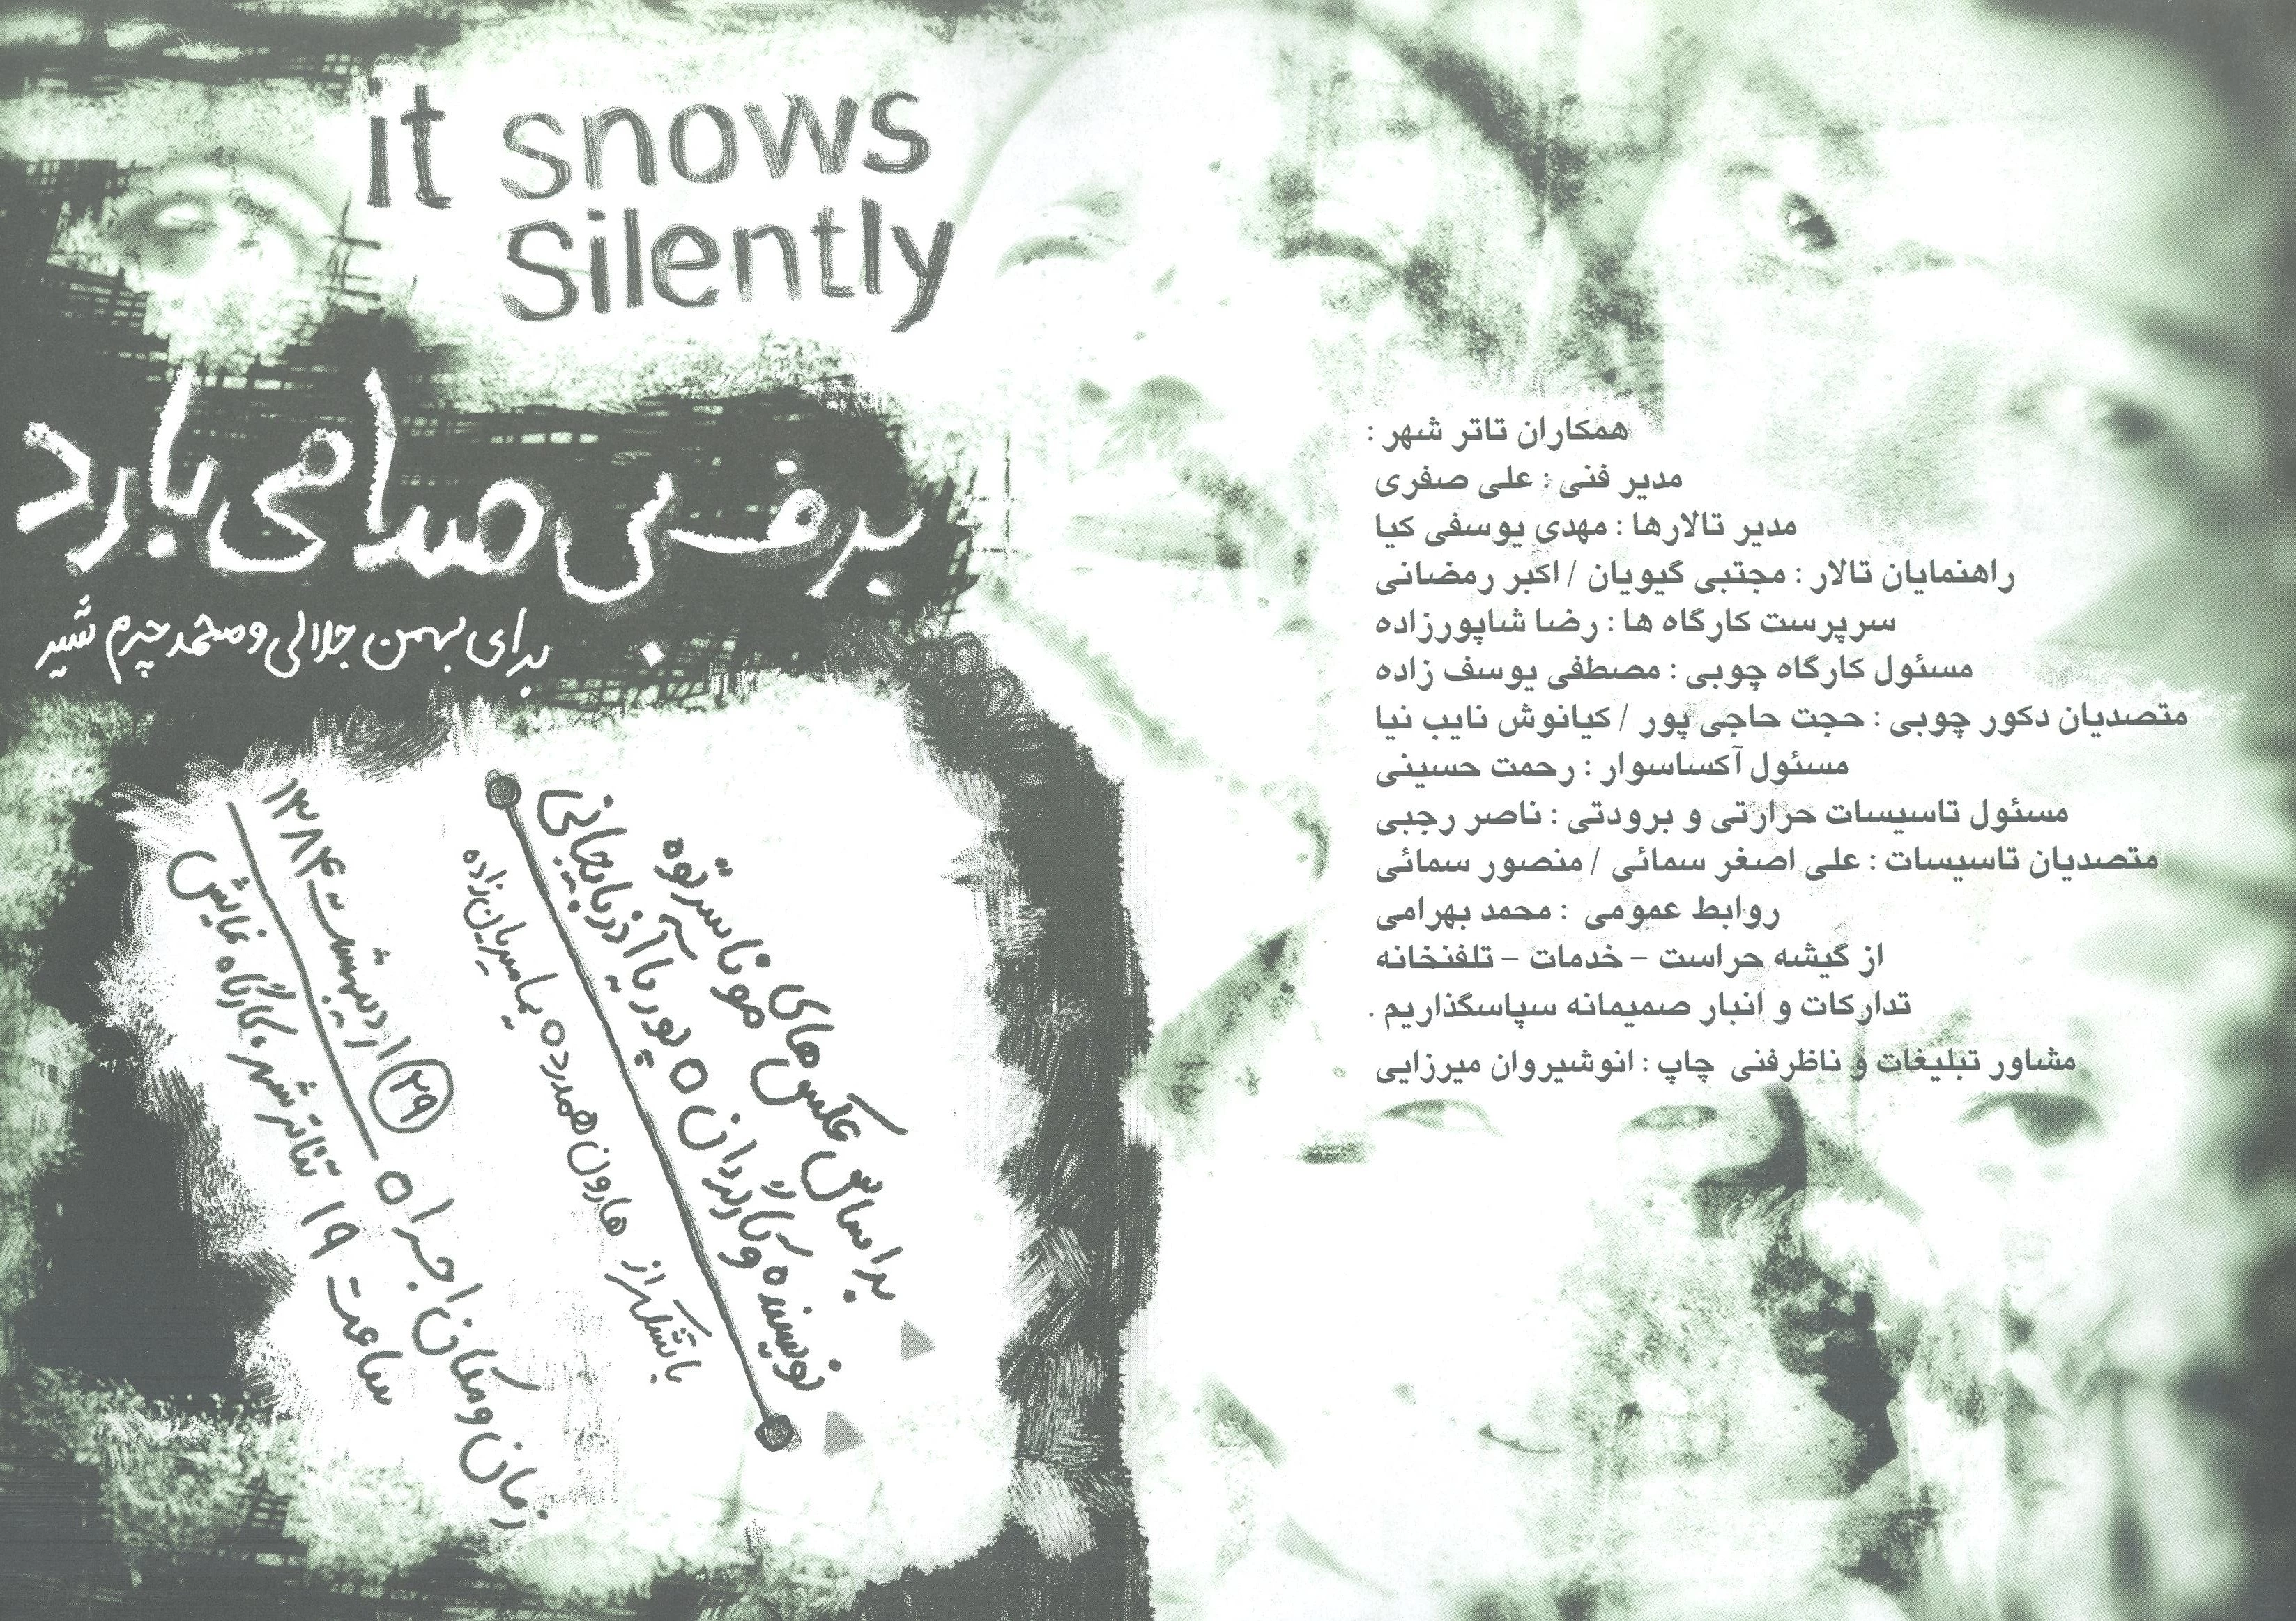 it snows
Silently
برف بی صدا می بارد
برای بهمن جلالی و محمد چرم شیر
بر اساس عکس های مونا سرتوه
نویسنده و کارگردان ٥ پوریا آذربایجانی
با تشکر از هارون همدرده یما میریان زاده
زمان و مکان اجرا ٥ ۲۹ اردیبهشت ۱۳۸۴
ساعت ۱۹ تئاتر شهر. کارگاه نمایش
همکاران تاتر شهر :
مدیر فنی : علی صفری
مدیر تالارها : مهدی یوسفی کیا
راهنمایان تالار : مجتبی گیویان / اکبر رمضانی
سرپرست کارگاه ها : رضا شاپورزاده
مسئول کارگاه چوبی : مصطفی یوسف زاده
متصدیان دکور چوبی : حجت حاجی پور / کیانوش نایب نیا
مسئول آکساسوار : رحمت حسینی
مسئول تاسیسات حرارتی و برودتی : ناصر رجبی
متصدیان تاسیسات : علی اصغر سمائی / منصور سمائی
روابط عمومی : محمد بهرامی
از گیشه حراست – خدمات – تلفنخانه
تدارکات و انبار صمیمانه سپاسگذاریم .
مشاور تبلیغات و ناظرفنی چاپ : انوشیروان میرزایی